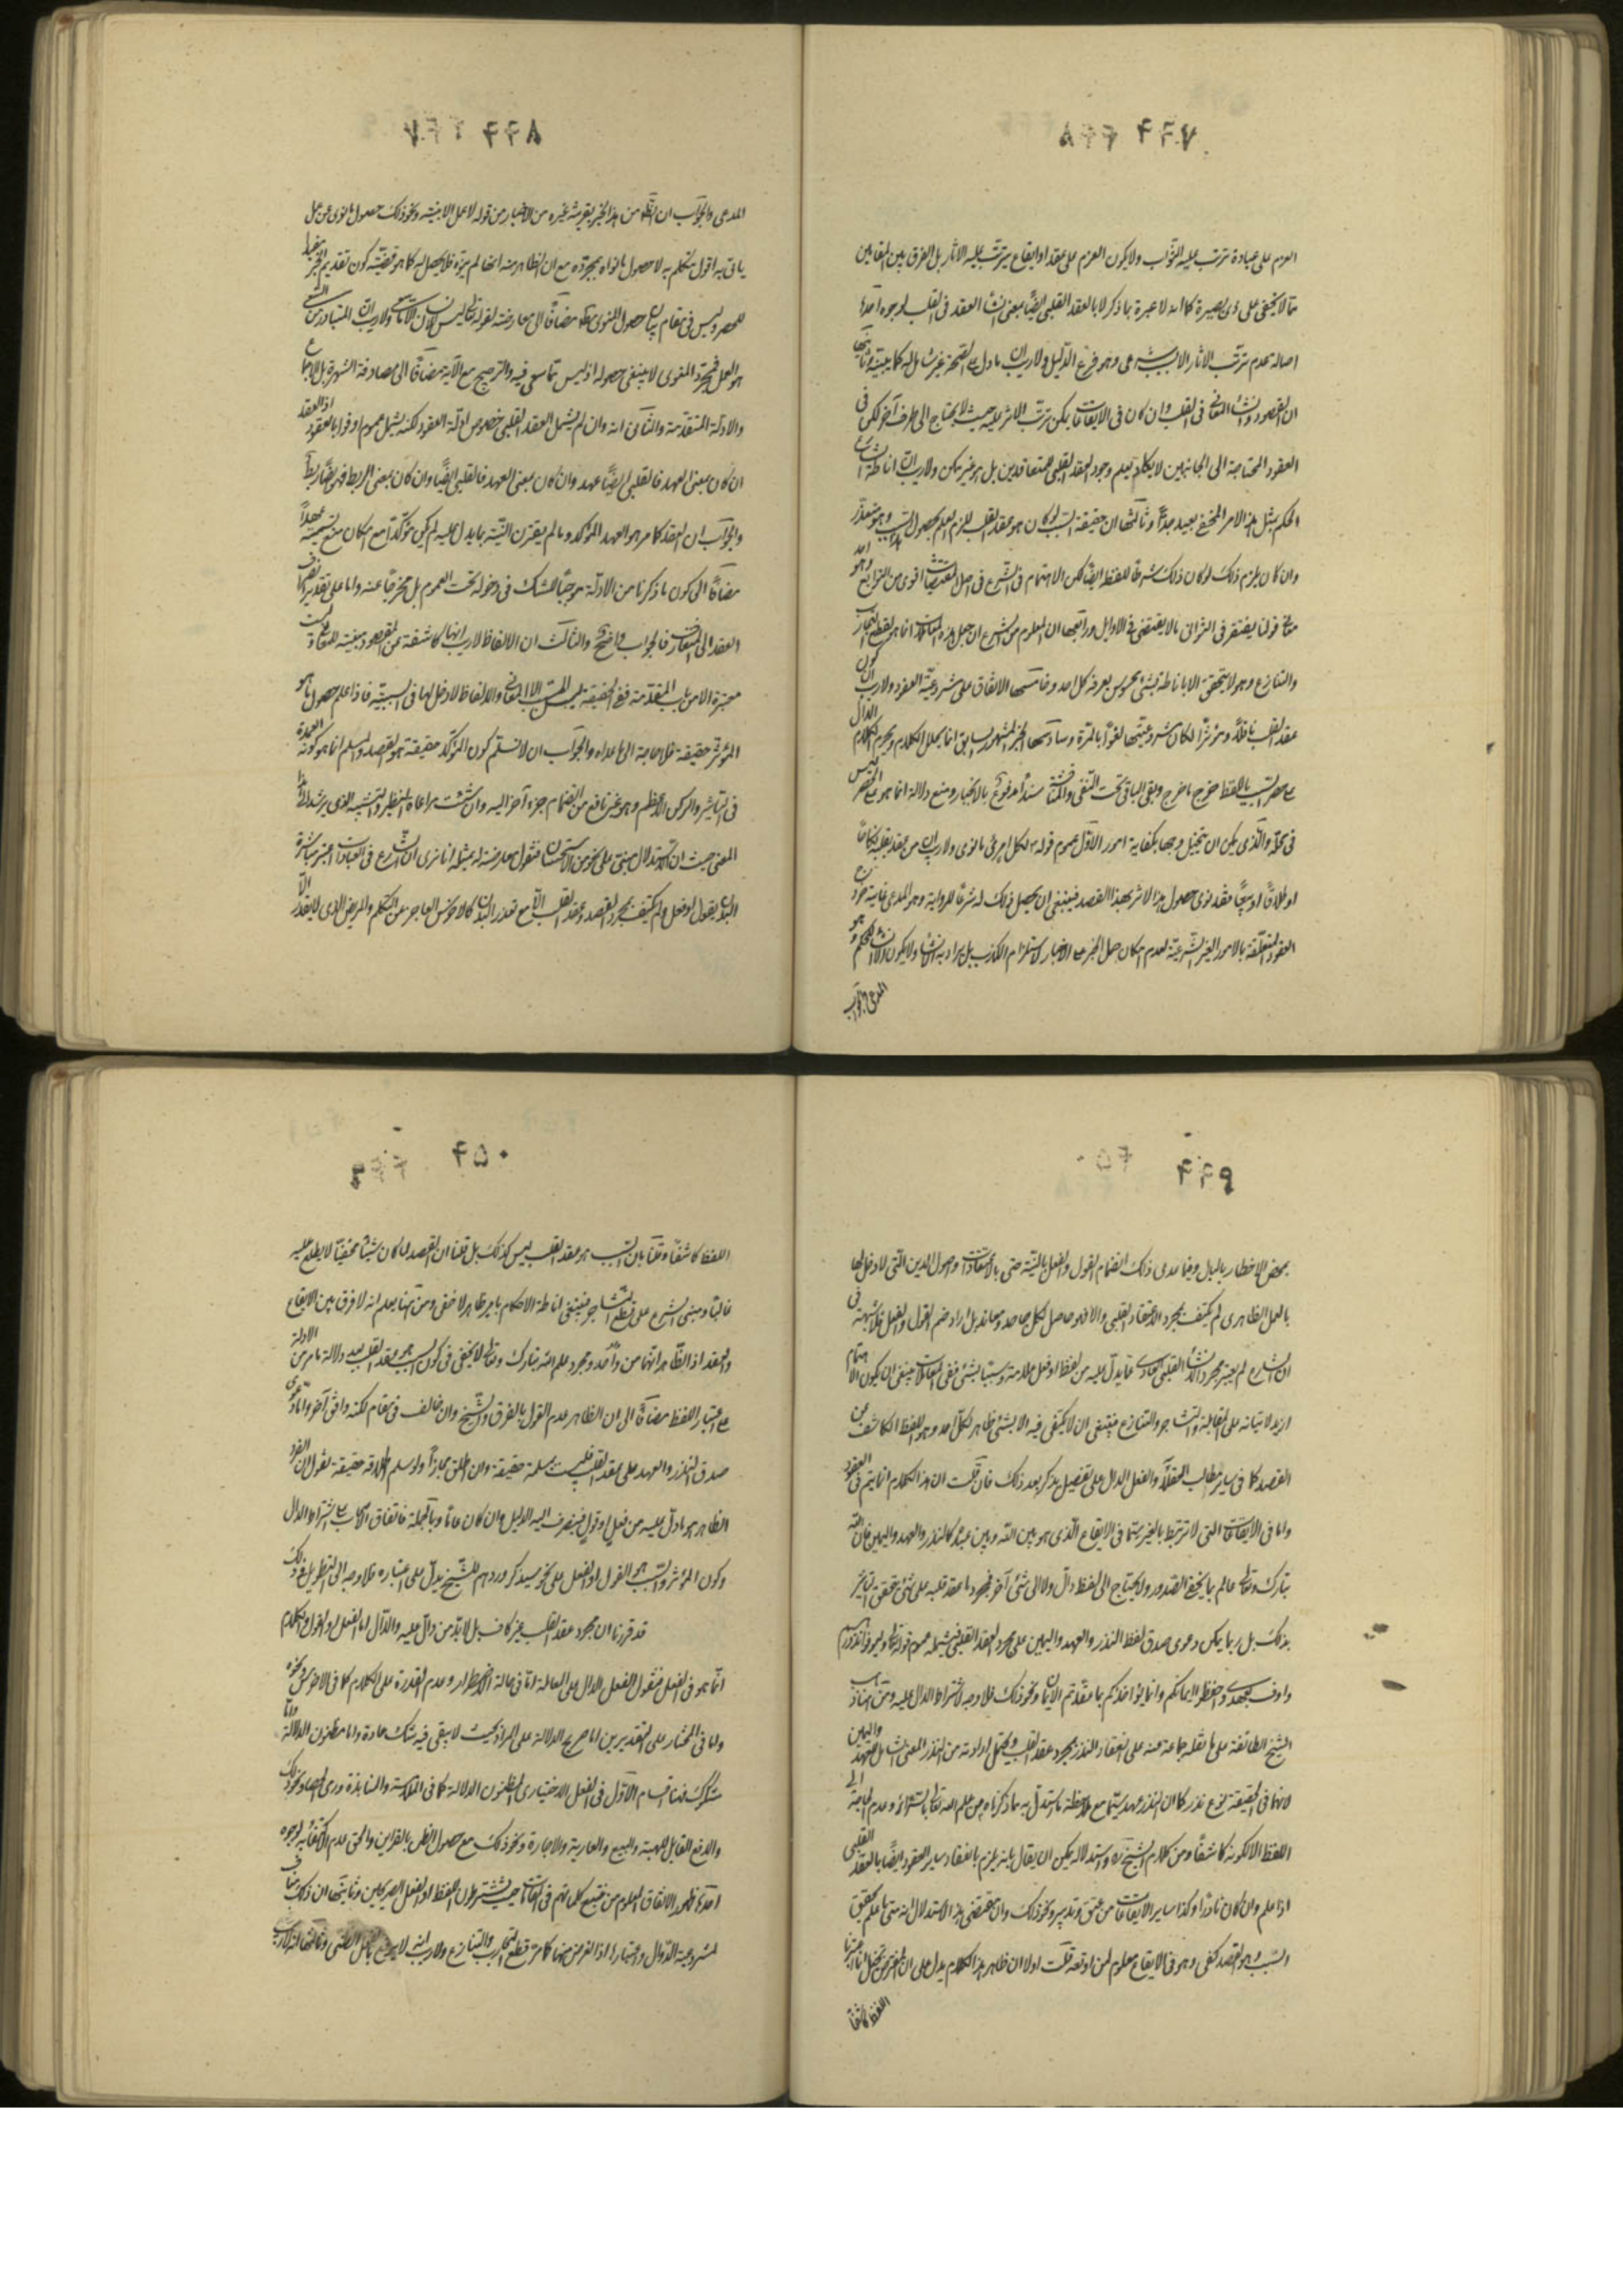 ٤٤٧ ٤٤٨
العزم على عبادة ترتب عليه الثواب ولا يكون العزم على عقد او ايقاع يترتب عليه الاثار بل الفرق بين المقامين
مما لا يخفى على ذى بصيرة كما انه لا عبرة بما ذكر لا بالعقد القلبى ايضًا بمعنى انشاء العقد فى القلب لوجوه احدها
اصالة عدم ترتب الاثار الا بسبب شرعى وهو فرع الدليل ولا ريب ان ما دل على الصحة غير شامل له كما يبينه وثانيها
ان القصود وانشاء المعانى فى القلب وان كان فى الايقاعات يمكن ترتب الاثر عليه حيث لا يحتاج الى طرف آخر لكن فى
العقود المحتاجة الى الجانبين لا يكاد يعلم وجود العقد القلبى للمتعاقدين بل هو غير ممكن ولا ريب ان اناطة الشارع
الحكم بمثل هذا الامر المخفى بعيد جدًّا وثالثها ان حقيقة السبب لو كان هو عقد القلب للزم العلم بحصول السبب وهو متعذر
وان كان يلزم ذلك لو كان ذلك شرطًا للفظ ايضًا لكن الاهتمام فى الشرع فى اصل المقتضيات اقوى من التوابع وهو احد
قولنا يغتفر فى الثوانى ما لا يغتفر فى الاوايل ورابعها ان المعلوم من الشرع ان جعل هذه المعاملات انما هو لقطع التجاذب
والتنازع وهو لا يتحقق الا باناطة بشئ محسوس يعرفه كل احد وخامسها الاتفاق على مشروعية العقود ولا ريب ان كون
عقد القلب ناقلًا ومؤثرًا لكان مشروعيتها لغوًا بالمرة وسادسها الخبر المشهور السابق انما يحلل الكلام ويحرم الكلام الدال
على حصر السبب باللفظ خرج ما خرج وبقى الباقى تحت النفى والمناقشة سندًا مدفوع بالانجبار ومنع دلالة انما هو على الحصر ليس
فى محله والذى يمكن ان يتخيل وجهًا بكفاية امور الاول عموم قوله ص لكل امرئ ما نوى ولا ريب ان من عقد بقلبه نكاحًا
او طلاقًا او بيعًا فقد نوى حصول هذا الاثر بهذا القصد فينبغى ان يحصل ذلك له شرعًا للرواية وهو المدعى غاية خروج
العقود المتعلقة بالامور الغير الشرعية لعدم امكان حمل الخبر على الاخبار لاستلزام الكذب بل يراد به الانشاء ولا يكون الا انشاء الحكم وهو
المدعى والجواب
٤٤٨ ٤٤٧
المدعى والجواب ان الظاهر من هذا الخبر بقرينة غيره من الاخبار من قوله لا عمل الا بنية ونحو ذلك حصول ما نوى عن عمل
ياتى به اقول يتكلم به لا حصول ما نواه بمجرده مع ان الظاهر منه انه ما لم ينوه فلا يحصل له كما هو قضية كون تقديم الخبر مفيدا
للحصر وليس فى مقام بيان حصول المنوى مطلقا مضافًا الى معارضته لقوله تعالى ليس للانسان الا ما سعى ولا ريب ان المتبادر من السعى
هو العمل فمجرد المنوى لا ينبغى حصوله اذ ليس مما سعى فيه والترجيح مع الآية مضافًا الى مصادفة الشهرة بل الاجماع
والادلة المتقدمة والثانى انه وان لم يشمل العقد القلبى خصوص ادلة العقود لكنه يشمل عموم اوفوا بالعقود اذ العقد
ان كان بمعنى العهد فالقلبى ايضًا عهد وان كان بمعنى العهد فالقلبى ايضًا وان كان بمعنى الربط فهو ايضًا ربط
والجواب ان العقد كما مر هو العهد المؤكد وما لم يقترن النية بما يدل عليه لم يكن مؤكدًا مع امكان منع تسميته عهدًا
مضافًا الى كون ما ذكرنا من الادلة موجبًا للشك فى دخوله تحت العموم بل مخرجًا عنه واما على تقدير انصراف
العقد الى المتعارف فالجواب واضح والثالث ان الالفاظ لا ريب انها كاشفة عن المقصود مبنية للمعانى وليست
معتبرة الا من باب المقدمة ففى الحقيقة ليس السبب الا المعانى والالفاظ لا دخل لها فى السببية فاذا علم حصول ما هو
المؤثر حقيقة فلا حاجة الى ما عداه والجواب ان لا نسلم كون المؤكد حقيقة هو القصد والمسلم انما هو كونه العمدة
فى التاثير والركن الاعظم وهو غير نافع من انضمام جزء آخر اليه وان شئت مراعاة التنظير والتشبيه الذى يرشد الى هذا
المعنى حيث ان الاستدلال مبنى على نحو من الاستحسان فنقول معارضته له بمثله انا نرى ان الشارع فى العبادات اعتبر مباشرة
البدن بقول او فعل ولم يكتف بمجرد القصد وعقد القلب الا مع تعذر البدن كالاخرس العاجز عن التكلم والمريض الذى لا يقدر الا
٤٤٩ ٤٥٠
بمحض الاخطار بالبال وفيما عدى ذلك انضمام القول والفعل بالنية حتى بالاعتقادات واصول الدين التى لا دخل لها
بالعمل الظاهرى لم يكتف بمجرد الاعتقاد القلبى والا فهو حاصل لكل جاحد ومعاند بل اراد ضم القول والفعل فلا شبهة فى
ان الشارع لم يعتبر مجرد الانشاء القلبى العارى عما يدل عليه من لفظ او فعل علامة وسببا بشئ ففى المعاملات ينبغى ان يكون الاهتمام
ازيد لابتنائه على المغالبة والتشاجر والتنازع فينبغى ان لا يكتفى فيه الا بشئ ظاهر لكل احد وهو اللفظ الكاشف عن
القصد كما فى ساير مطالب العقلاء والفعل الدال على تفصيل يذكر بعد ذلك فان قلت ان هذا الكلام انما يتم فى العقود
واما فى الايقاعات التى لا ترتبط بالغير سيما فى الايقاع الذى هو بين الله وبين عبده كالنذر والعهد واليمين فان الله
تبارك وتعالى عالم بما يخفى الصدور ولا يحتاج الى لفظ دال ولا الى شئ آخر فمجرد ما عقد قلبه على شئ يتحقق التاثير
بذلك بل ربما يمكن دعوى صدق لفظ النذر والعهد واليمين على مجرد العقد القلبى فيشمله عموم قوله تعالى وليوفوا نذورهم
واوف بعهدى واحفظوا ايمانكم وانما يؤاخذكم بما عقدتم الايمان ونحو ذلك فلا وجه لاشتراط الدال عليه ومن هنا ذهب
الشيخ الطائفة على ما نقله جماعة عنه على انعقاد النذر بمجرد عقد القلب ويحتمل ارادته من النذر المعنى الشامل للعهد واليمين
لانهما فى الحقيقة نوع نذر كما ان النذر عهد سيما مع ملاحظة ما استدل به ما ذكرناه من علم الله تعالى بالسرائر وعدم الحاجة الى
اللفظ الا لكونه كاشفًا ومن كلام الشيخ ره واستدلاله يمكن ان يقال بانه يلزم بانعقاد ساير العقود ايضًا بالعقد القلبى
اذا علم وان كان نادرًا وكذا ساير الايقاعات من عتق وتدبير ونحو ذلك وان مقتضى هذا الاستدلال انه متى ما علم تحقق
السبب وهو القصد كفى وهو فى الايقاع معلوم لمن اوقعه قلت اولا ان ظاهر هذا الكلام يدل على ان المعترض تخيل انا اعتبرنا
اللفظ كاشفًا
٤٥٠ ٤٤٩
اللفظ كاشفًا وقلنا بان السبب هو عقد القلب ليس كذلك بل قلنا ان القصد لما كان شيئًا مخفيًا لا يطلع عليه
غالبًا ومبنى الشرع على قطع التشاجر فينبغى اناطة الاحكام بامر ظاهر لا خفى ومن هنا يعلم انه لا فرق بين الايقاع
والعقد اذ الظاهر انهما من واد واحد ومجرد علم الله تبارك وتعالى لا يكفى فى كون السبب هو عقد القلب بعد دلالة ما مر من الادلة
على اعتبار اللفظ مضافًا الى ان الظاهر عدم القول بالفرق والشيخ وان خالف فى مقام لكنه وافق آخر واما دعوى
صدق النذر والعهد على عقد القلب فليست بمسلمة حقيقة وان اطلق مجازًا ولو سلم اطلاقه حقيقة نقول ان الفرد
الظاهر هو ما دل عليه من فعل او قول فينصرف اليه الدليل وان كان عامًا وبالجملة فاتفاق الاصحاب على اشتراط الدال
وكون المؤثر والسبب هو القول او الفعل على نحو سيذكر وردهم للشيخ يدل على اعتباره فلا وجه الى التطويل فى ذلك
قد قررنا ان مجرد عقد القلب غير كاف بل لا بد من دال عليه والدال اما الفعل او القول والكلام
انما هو فى الفعل فنقول الفعل الدال على المعاملة اما فى حالة الاضطرار وعدم القدرة على الكلام كما فى الاخرس ونحوه
واما فى المختار على التقديرين اما صريح الدلالة على المراد بحيث لا يبقى فيه شك عادة واما مظنون الدلالة واما
مشكوك فهنا اقسام الاول فى الفعل الاختيارى المظنون الدلالة كما فى الملامسة والمنابذة ورمى الحصاة ونحو ذلك
والدفع القابل للهبة والبيع والعارية والاجارة ونحو ذلك مع حصول الظن بالقراين والحق عدم الاكتفاء به لوجوه
احدها ظهور الاتفاق المعلوم من تتبع كلماتهم فى المقامات حيث يشترطون اللفظ او الفعل الصريحين وثانيها ان ذلك مناف
لمشروعية الدوال واعتبارها اذ الغرض منها كما مر قطع التجاذب والتنازع ولا ريب انه لا يرتفع بالفعل الظنى وثالثها انه لا ريب